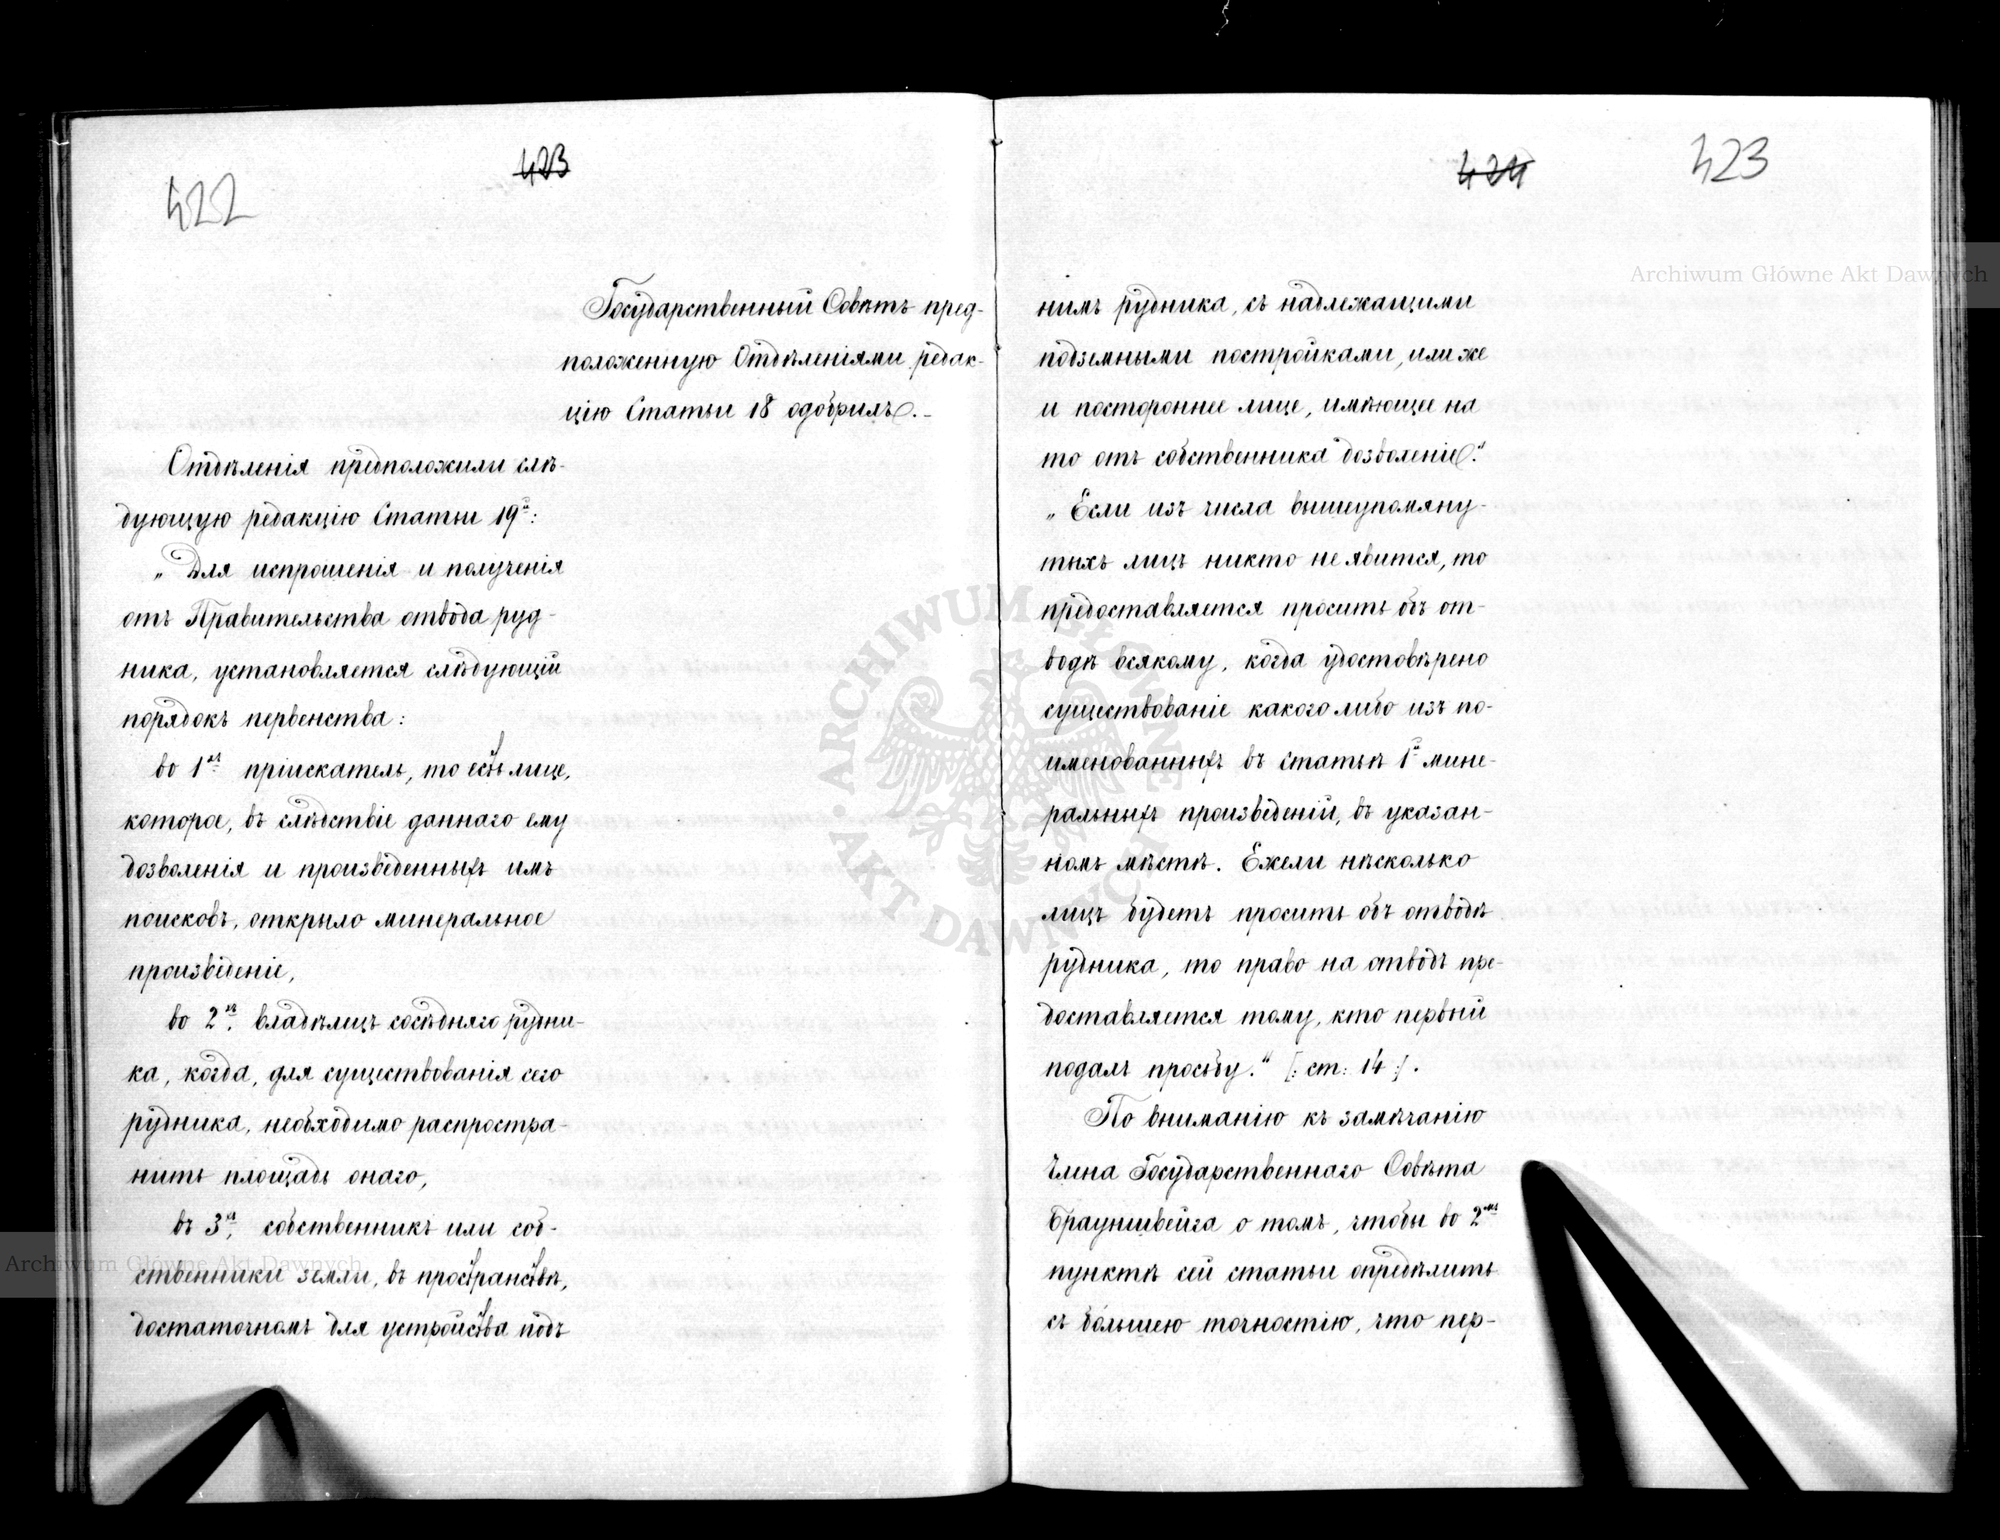 422
423
Государственный Совѣтъ пред-
положенную Отдѣленіями редак-
цію Статьи 18 одобрилъ.
Отдѣленія предположили слѣ-
дующую редакцію Статьи 19й:
„Для испрошенія и полученія
отъ Правительства отвода руд-
ника, установляется слѣдующій
порядокъ первенства:
во 1хъ пріискатель, то есть лице,
которое, въ слѣдствіе даннаго ему
дозволенія и произведенныхъ имъ
поисковъ, открыло минеральное
произведеніе,
во 2хъ, владѣлецъ сосѣдняго рудни-
ка, когда, для существованія сего
рудника, необходимо распростра-
нить площадь онаго,
въ 3хъ, собственникъ или соб-
ственники земли, въ пространствѣ,
достаточномъ для устройства подъ
424
423
нимъ рудника, съ надлежащими
подземными постройками, или же
и постороннее лице, имѣющее на
то отъ собственника дозволеніе."
„Если изъ числа вышеупомяну-
тыхъ лицъ никто не явится, то
предоставляется просить объ от-
водѣ всякому, когда удостовѣрено
существованіе какого либо изъ по-
именованныхъ въ статьѣ 1й мине-
ральныхъ произведеній, въ указан-
номъ мѣстѣ. Ежели нѣсколько
лицъ будетъ просить объ отводѣ
рудника, то право на отводъ пре-
доставляется тому, кто первый
подалъ просьбу." [: ст: 14 :].
По вниманію къ замѣчанію
Члена Государственнаго Совѣта
Брауншвейга о томъ, чтобы во 2мъ
пунктѣ сей статьи опредѣлить
съ бóльшею точностію, что пер-
Archiwum Główne Akt Dawnych
Archiwum Główne Akt Dawnych
ARCHIWUM GŁÓWNE AKT DAWNYCH